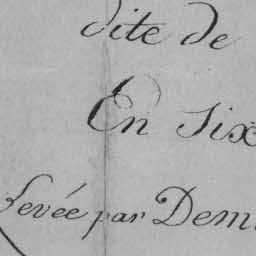 dite de
En Six
Levée par Dem